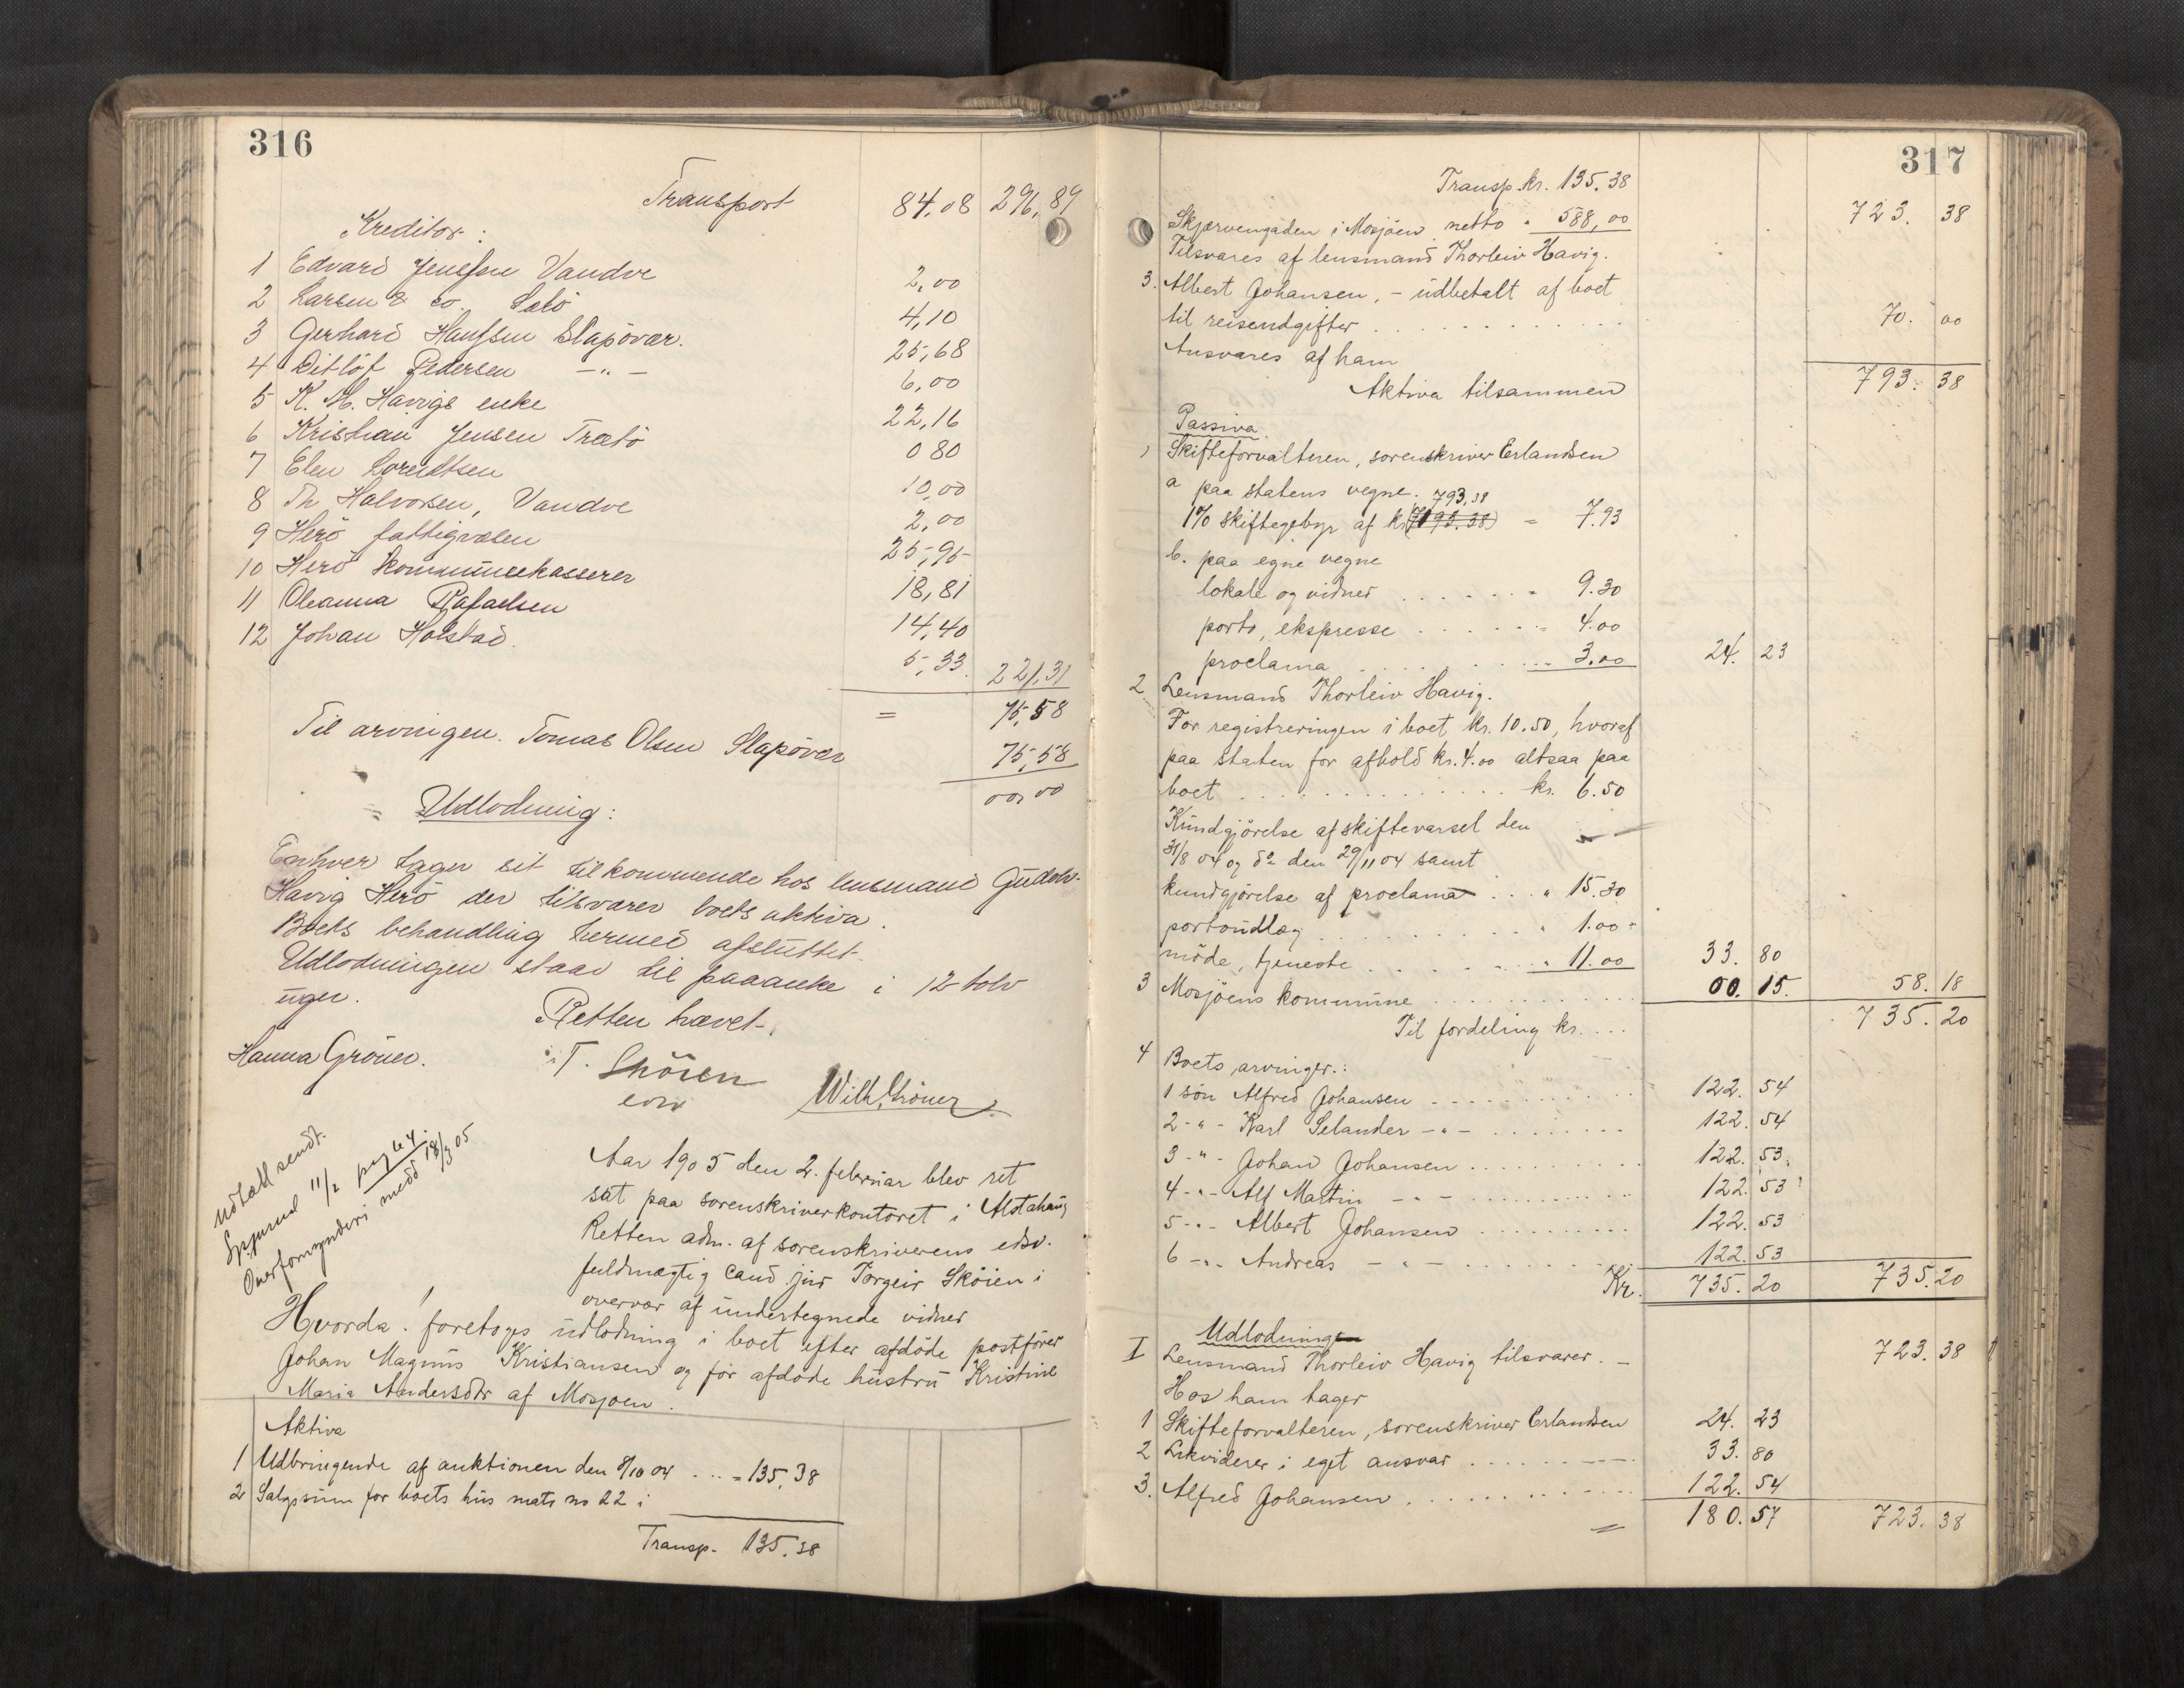 316
Transport 84,08 296,89
Kreditor:
1 Edvard Jenssen Vandve 2,00
2 Larsen & co. Salö 4,10
3 Gerhard Hanssen Slapövær. 25,68
4 Ditlöf Pedersen -"- 6,00
5 K. M. Havigs enke 22,16
6 Kristian Jensen Trætö 0 80
7 Elen Lorentsen 10,00
8 Th Halvorsen, Vandve 2,00
9 Herö fattigvæsen 25,95
10 Herö kommunekasserer 18,81
11 Oleanna Rafaelsen 14,40
12 Johan Holstad. 5,33. 221,31
= 75,58
Til arvingen. Tomas Olsen Slapövær 75,58
00,00
Udlodning:
Enhver tager sit tilkommende hos lensmand Gudolv
Havig Herö der tilsvarer boets aktiva.
Boets behandling hermed afsluttet.
Udlodningen staar til paaanke i 12 tolv
uger.
Retten hævet.
Hanna Gröner. T. Sköien Wilh. Gröner.
edsv
Udtall sendt.
Spjurnal 11/2 pag 64.
Overformynderi medd 18/3 05
Aar 1905 den 2. februar blev ret
sat paa sorenskriverkontoret i Alstahaug
Retten adm. af sorenskriverens edsv.
fuldmægtig cand. jur Torgeir Sköien i
overvær af undertegnede vidner
Hvorda! foretoges udlodning i boet efter afdöde postförer
Johan Magnus Kristiansen og før afdöde hustru Kristine
Maria Andersdtr af Mosjøen.
Aktiva
1 Udbringende af auktionen den 8/10 04 ... = 135,38
2 Salgssum for boets hus matr no 22 i
Transp. 135.38
317
Transp. kr. 135.38
Skjervengaden i Mosjöen netto " 588,00 723. 38
Tilsvares af lensmand Thorleiv Havig.
3. Albert Johansen, - udbetalt af boet
til reiseudgifter 70. 00
Ansvares af ham
Aktiva tilsammen 793. 38
Passiva.
1 Skifteforvalteren, sorenskriver Erlandsen
a paa statens vegne. 793,38
1% skiftegebyr af kr (7193.38) = 7.93
b. paa egne vegne
lokale og vidner 9.30
porto, ekspresse 4.00
proclama 3.00 24. 23
2 Lensmand Thorleiv Havig.
For registreringen i boet kr. 10.50, hvoraf
paa staten for afhold kr. 4.00 altsaa paa
boet kr. 6.50
Kundgjörelse af skiftevarsel den
31/8 04 og do den 29/11 04 samt
kundgjörelse af proclama " 15.30
portoudlæg " 1.00
möde, tjeneste " 11.00 33. 80
3 Mosjöens kommune 00. 15. 58. 18
Til fordeling kr. 735. 20
4 Boets arvinger.:
1 sön Alfred Johansen 122. 54
2 -"- Karl Selander -"- 122. 54
3 -"- Johan Johansen 122. 53
4 -"- Alf Martin -"- 122. 53
5 -"- Albert Johansen 122. 53
6 -"- Andreas -"- 122. 53
Kr. 735. 20 735. 20
Udlodning
I Lensmand Thorleiv Havig tilsvarer. 723. 38
Hos ham tager
1 Skifteforvalteren, sorenskriver Erlandsen 24. 23
2 Likviderer i eget ansvar 33. 80
3. Alfred Johansen 122. 54
= 180. 57 723. 38